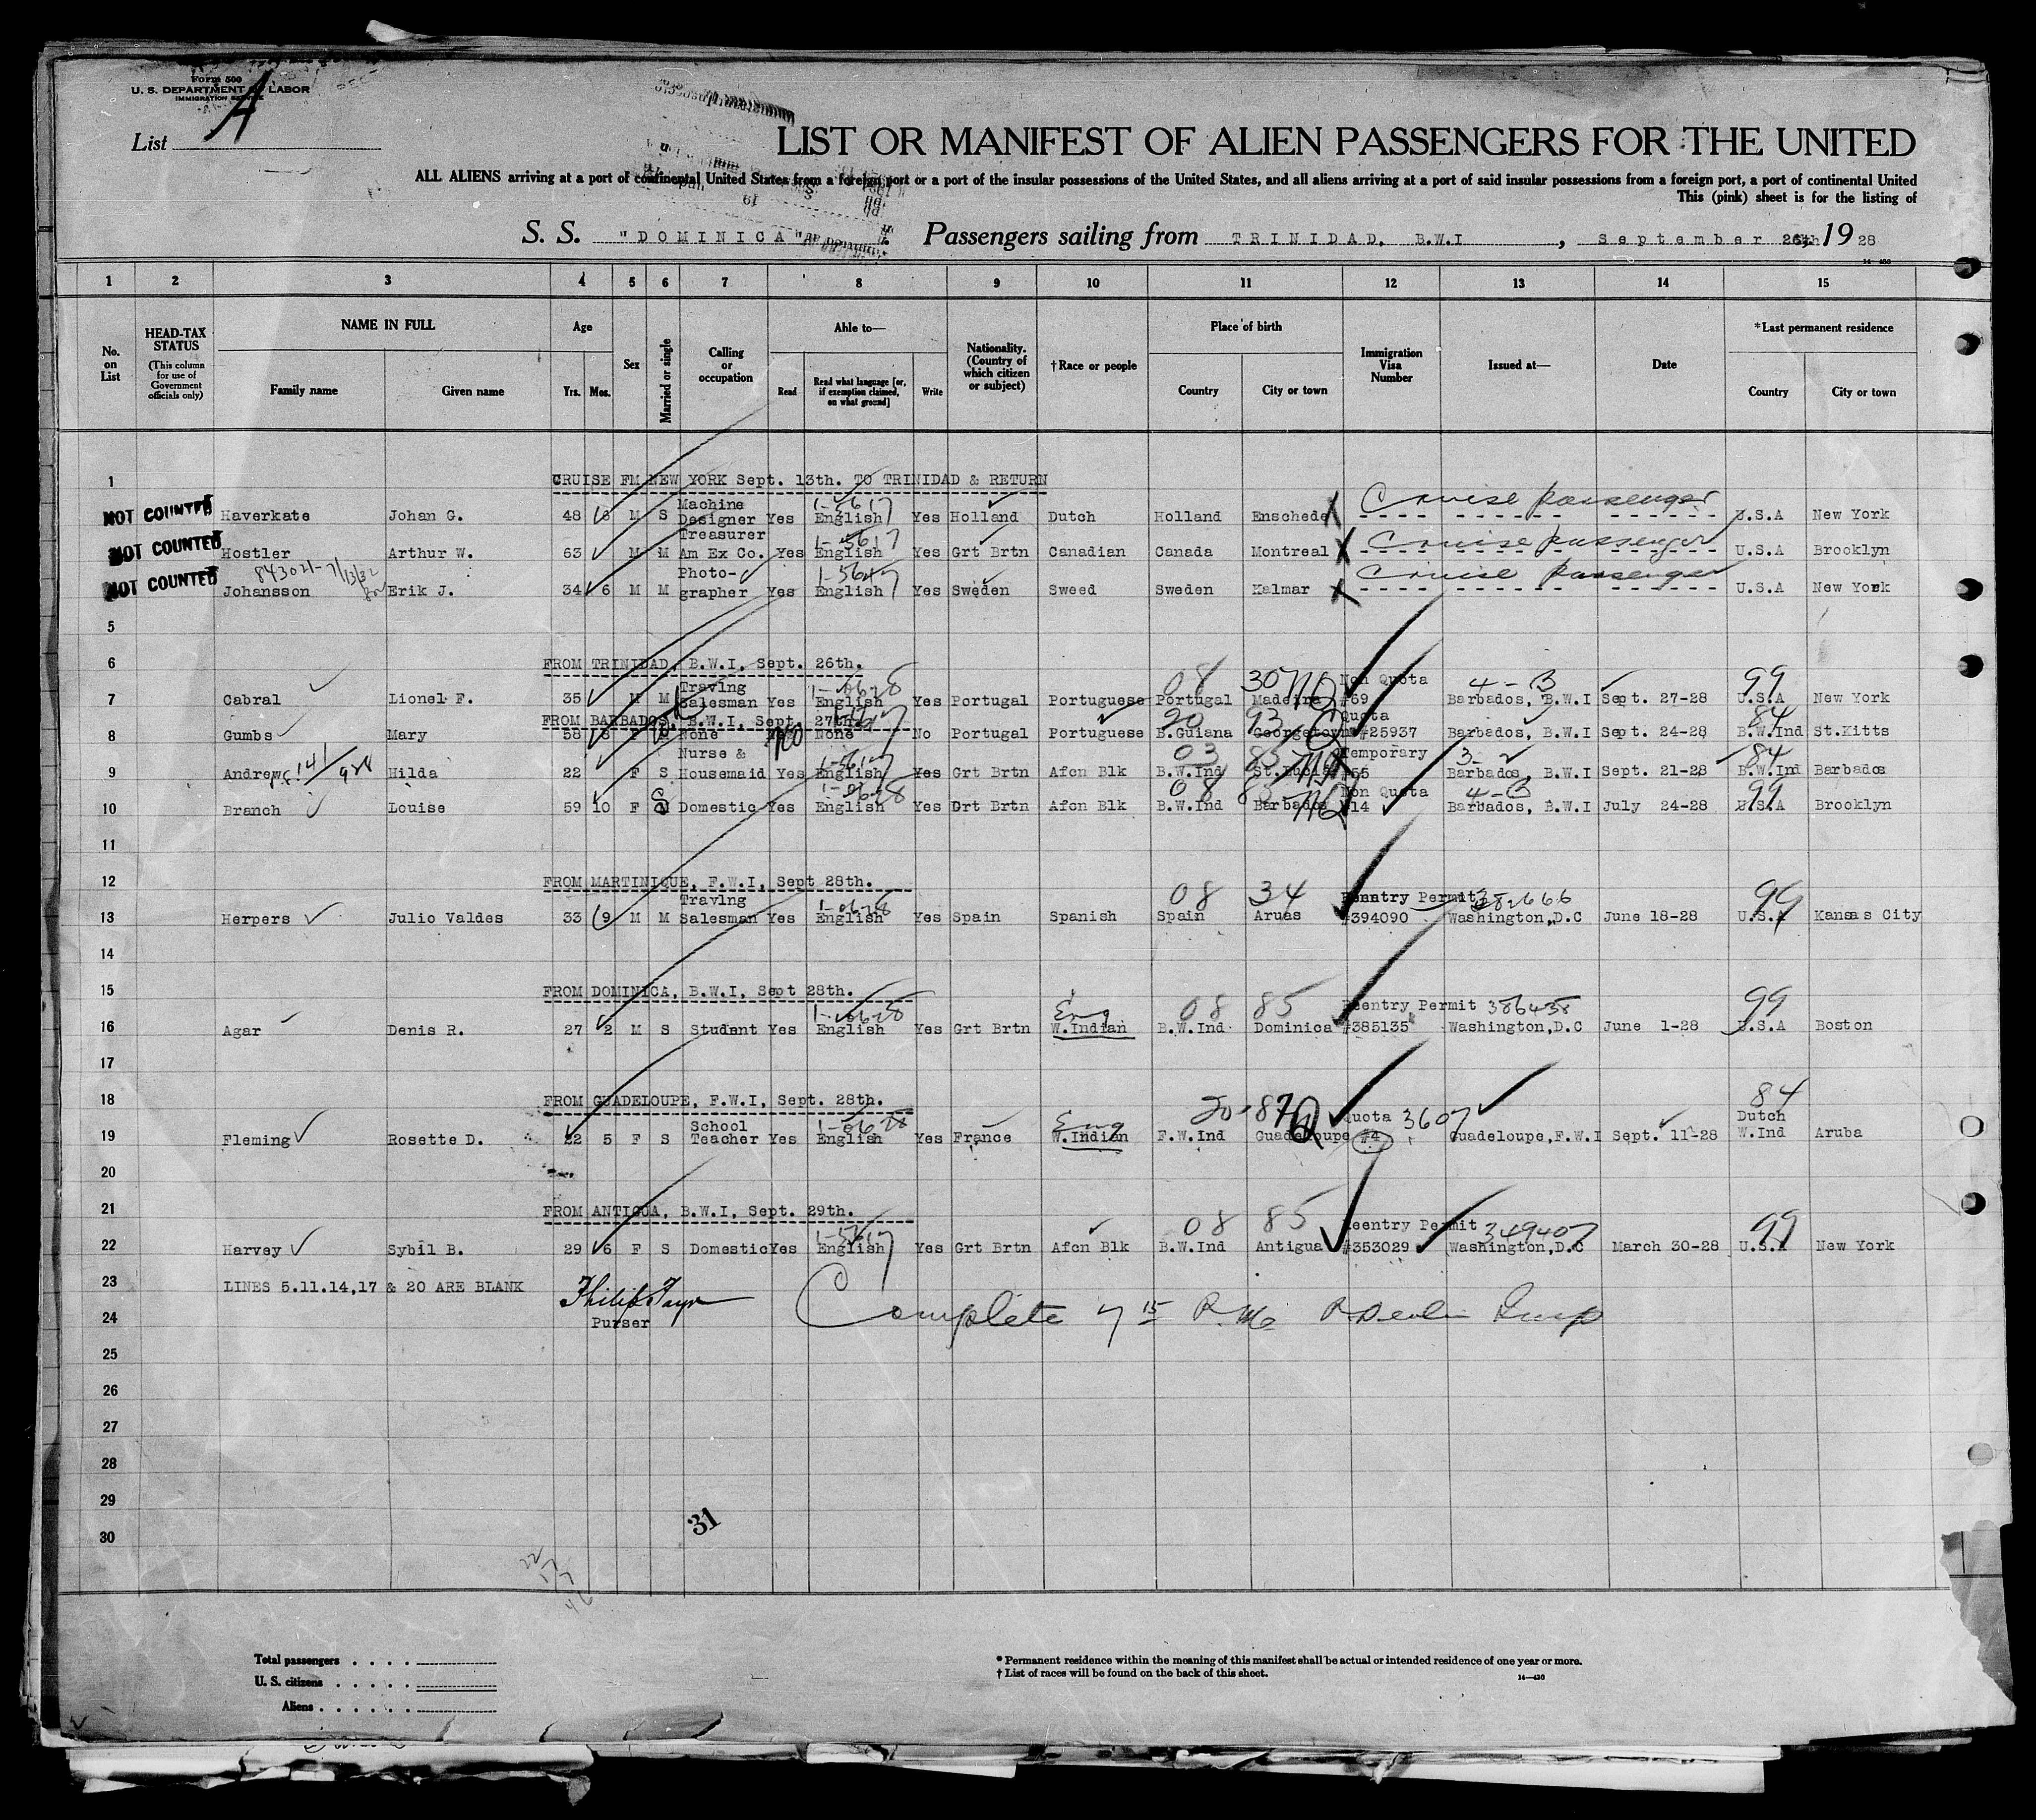 Form 500
U. S. DEPARTMENT OF LABOR
IMMIGRATION SERVICE
List A
LIST OR MANIFEST OF ALIEN PASSENGERS FOR THE UNITED
ALL ALIENS arriving at a port of continental United States from a foreign port or a port of the insular possessions of the United States, and all aliens arriving at a port of said insular possessions from a foreign port, a port of continental United
This (pink) sheet is for the listing of
S. S. "DOMINICA" Passengers sailing from TRINIDAD, B.W.I , September 26th 19 28
1 2 3 4 5 6 7 8 9 10 11 12 13 14 15
No. on List
HEAD-TAX STATUS (This column for use of Government officials only)
NAME IN FULL Family name Given name
Age Yrs. Mos.
Sex
Married or single
Calling or occupation
Able to— Read Read what language [or, if exemption claimed, on what ground] Write
Nationality. (Country of which citizen or subject)
†Race or people
Place of birth Country City or town
Immigration Visa Number
Issued at—
Date
*Last permanent residence Country City or town
1 CRUISE FM NEW YORK Sept. 13th. TO TRINIDAD & RETURN
NOT COUNTED Haverkate Johan G. 48 M S Machine Designer Yes English Yes Holland Dutch Holland Enschede X Cruise passenger U.S.A New York
NOT COUNTED Hostler Arthur W. 63 M M Treasurer Am Ex Co. Yes English Yes Grt Brtn Canadian Canada Montreal X Cruise passenger U.S.A Brooklyn
NOT COUNTED Johansson Erik J. 34 6 M M Photo-grapher Yes English Yes Sweden Sweed Sweden Kalmar X Cruise passenger U.S.A New York
5
6 FROM TRINIDAD, B.W.I, Sept. 26th.
7 Cabral Lionel F. 35 M M Travlng Salesman Yes English Yes Portugal Portuguese Portugal Madeira Non Quota #69 Barbados, B.W.I Sept. 27-28 U.S.A New York
FROM BARBADOS, B.W.I, Sept. 27th.
8 Gumbs Mary 58 F None No None No Portugal Portuguese B.Guiana Georgetown Quota #25937 Barbados, B.W.I Sept. 24-28 B.W.Ind St.Kitts
9 Andrews Hilda 22 F S Nurse & Housemaid Yes English Yes Grt Brtn Afcn Blk B.W.Ind St.Lucia Temporary #55 Barbados, B.W.I Sept. 21-28 B.W.Ind Barbados
10 Branch Louise 59 10 F Domestic Yes English Yes Grt Brtn Afcn Blk B.W.Ind Barbados Non Quota #14 Barbados, B.W.I July 24-28 U.S.A Brooklyn
11
12 FROM MARTINIQUE, F.W.I, Sept 28th.
13 Herpers Julio Valdes 33 9 M M Travlng Salesman Yes English Yes Spain Spanish Spain Aruas Reentry Permit 382666 #394090 Washington,D.C June 18-28 U.S.A Kansas City
14
15 FROM DOMINICA, B.W.I, Sept 28th.
16 Agar Denis R. 27 2 M S Student Yes English Yes Grt Brtn Eng W.Indian B.W.Ind Dominica Reentry Permit 386438 #385135 Washington,D.C June 1-28 U.S.A Boston
17
18 FROM GUADELOUPE, F.W.I, Sept. 28th.
19 Fleming Rosette D. 22 5 F S School Teacher Yes English Yes France Eng W.Indian F.W.Ind Guadeloupe Quota 3607 #4 Guadeloupe,F.W.I Sept. 11-28 Dutch W.Ind Aruba
20
21 FROM ANTIGUA, B.W.I, Sept. 29th.
22 Harvey Sybil B. 29 6 F S Domestic Yes English Yes Grt Brtn Afcn Blk B.W.Ind Antigua Reentry Permit 349407 #353029 Washington,D.C March 30-28 U.S.A New York
23 LINES 5.11.14,17 & 20 ARE BLANK
Purser
24 Complete 7 15 P.M.
25
26
27
28
29
31
30
Total passengers . . . .
U. S. citizens . . . . .
Aliens . . . . . .
* Permanent residence within the meaning of this manifest shall be actual or intended residence of one year or more.
† List of races will be found on the back of this sheet.
14—430